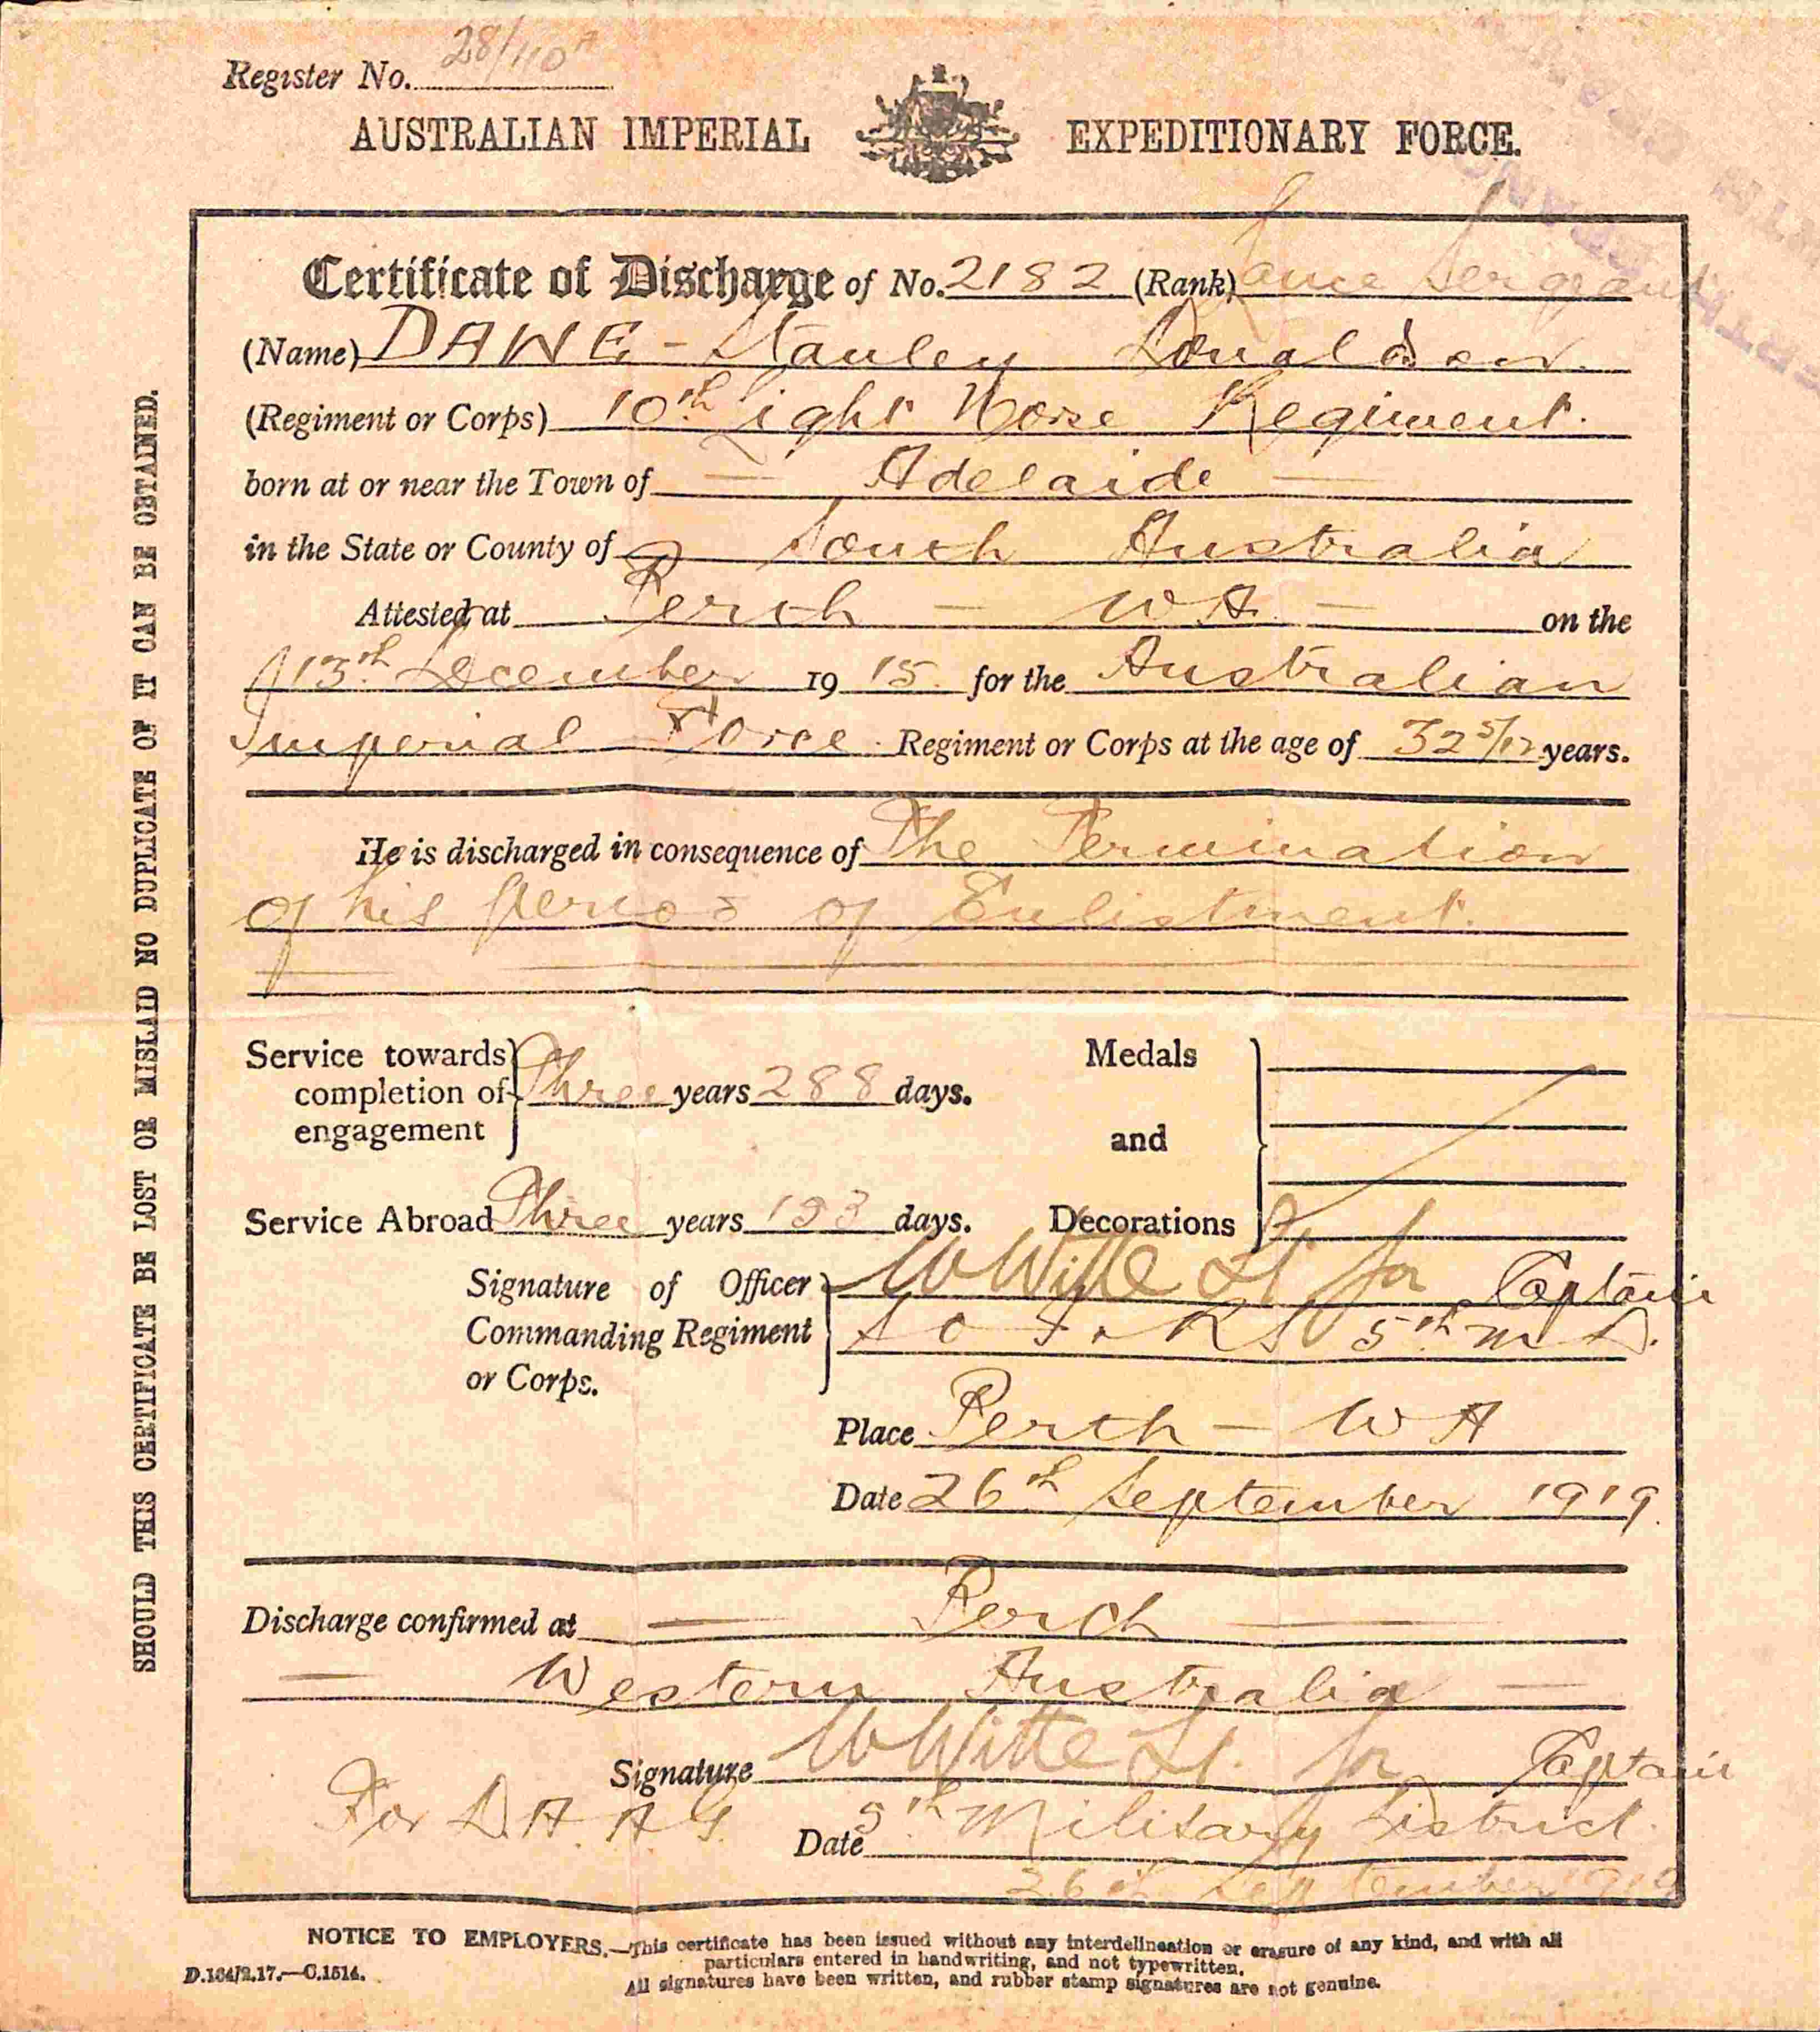 Register No. 28/110A
AUSTRALIAN IMPERIAL EXPEDITIONARY FORCE.
Certificate of Discharge of No. 2182 (Rank) Lance Sergeant
(Name) DAWE - Stanley Donaldson.
(Regiment or Corps) 10th Light Horse Regiment.
born at or near the Town of — Adelaide —
in the State or County of South Australia
Attested at Perth — WA — on the
13th December 1915. for the Australian
Imperial Force. Regiment or Corps at the age of 32 5/12 years.
He is discharged in consequence of The Termination
of his period of Enlistment.
Service towards completion of engagement } Three years 288 days.
Medals and Decorations
Service Abroad Three years 193 days.
Signature of Officer Commanding Regiment or Corps. } W Witte Lt for Captain
5th M D.
Place Perth — W A
Date 26th September 1919.
Discharge confirmed at — Perth —
— Western Australia —
Signature W Witte Lt. for Captain
For D.A.A.G. 5th Military District.
Date
26th September 1919
SHOULD THIS CERTIFICATE BE LOST OR MISLAID NO DUPLICATE OF IT CAN BE OBTAINED.
NOTICE TO EMPLOYERS.—This certificate has been issued without any interdelineation or erasure of any kind, and with all
particulars entered in handwriting, and not typewritten.
D.164/2.17.—C.1514.
All signatures have been written, and rubber stamp signatures are not genuine.